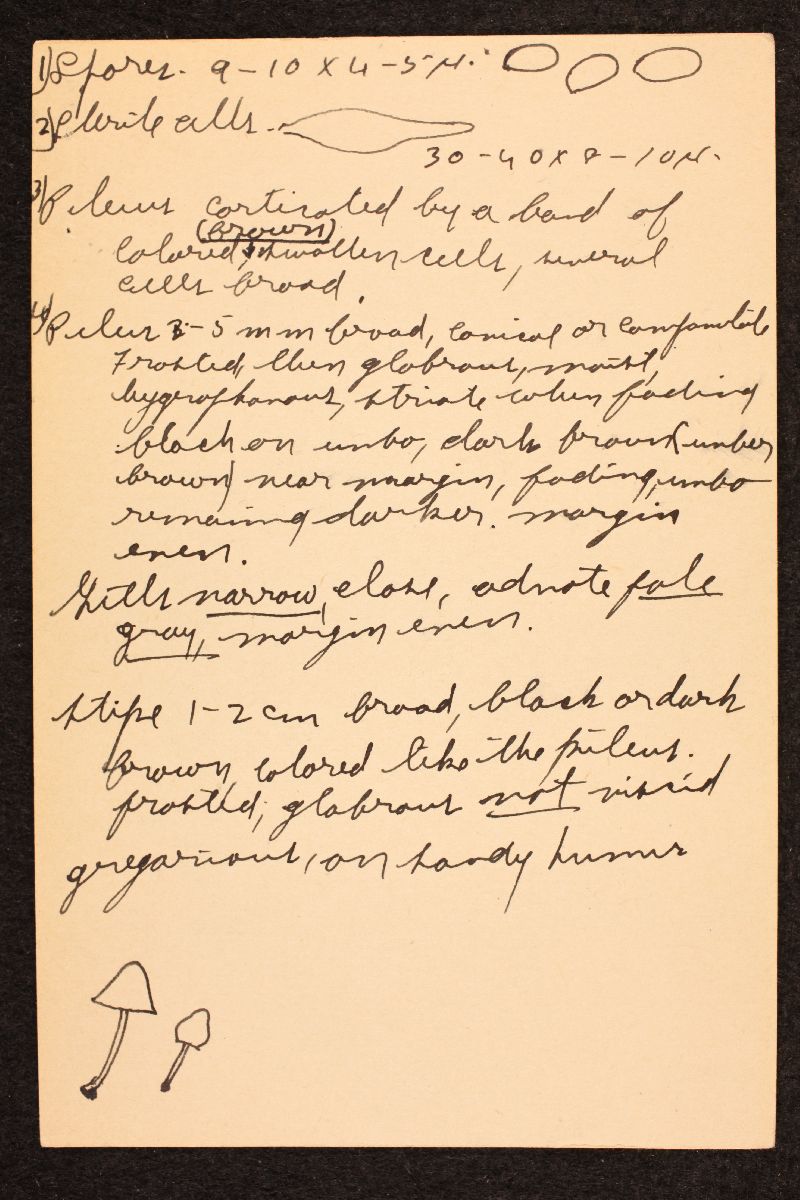 1) Spores. 9-10 X 4-5 μ.
2) Sterile cells.
30-40 X 8-10 μ.
3) Pileus corticated by a band of
(brown)
colored, swollen cells, several
cells broad.
4) Pileus 3-5 mm broad, conical or campanulate
Frosted, then glabrous, moist,
hygrophanous, striate when fading
black on umbo, dark brown (umber
brown) near margin, fading, umbo
remaining darker. margin
even.
Gills narrow, close, adnate pale
gray, margin even.
Stipe 1-2 cm broad, black or dark
brown, colored like the pileus.
frosted, glabrous not viscid
gregarious, on sandy humus